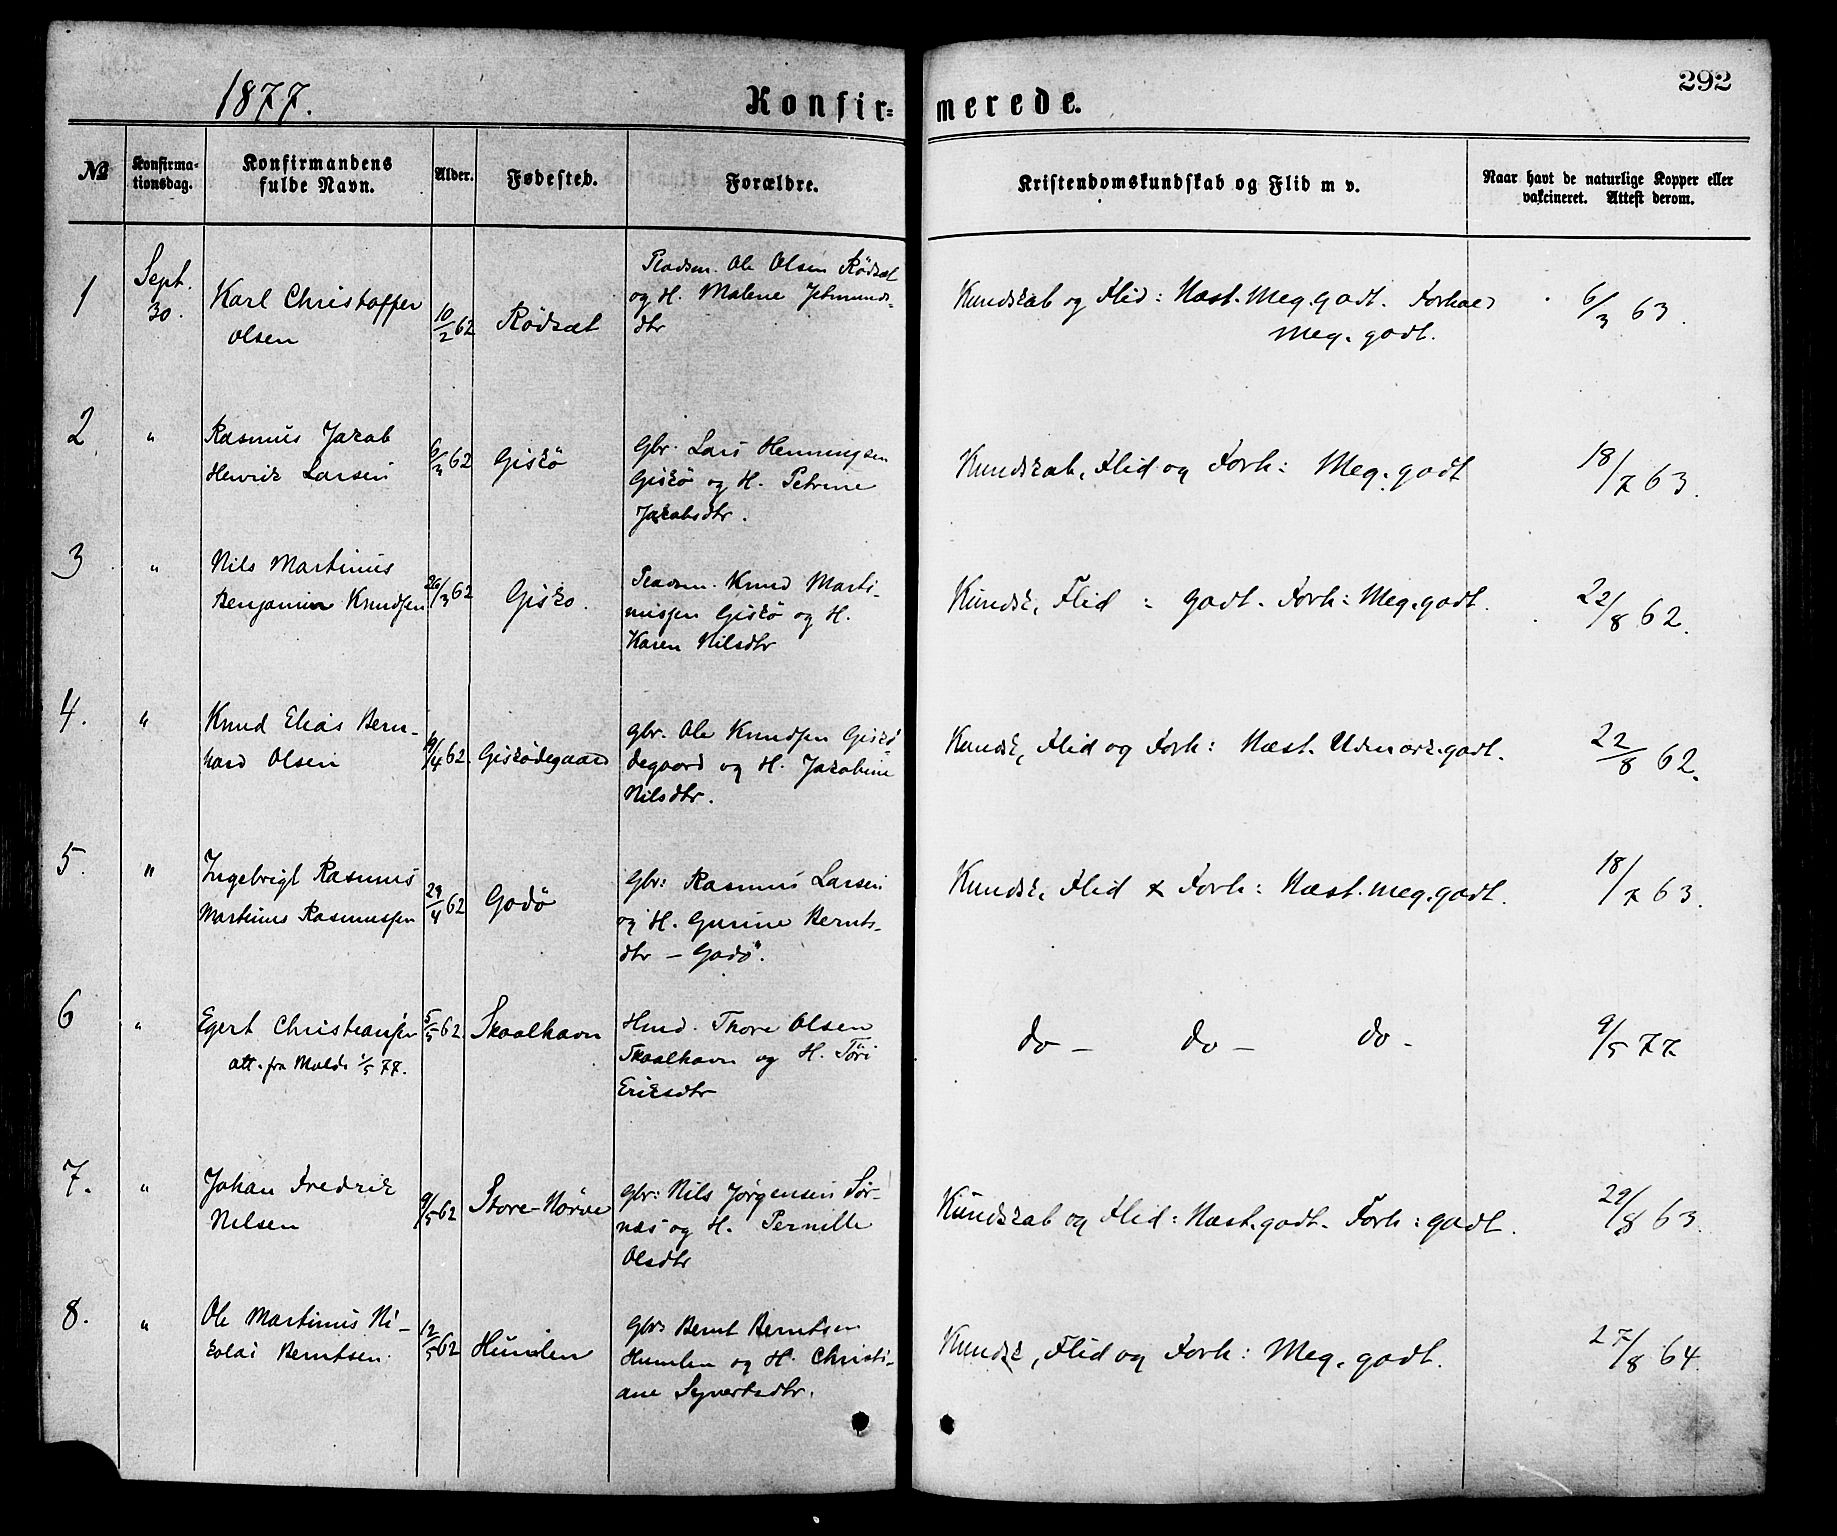 292
1877.
Konfir= merede.
№ Konfirma=tionsdag. Konfirmandens fulde Navn. Alder. Fødested. Forældre. Kristendomskundskab og Flid m v. Naar havt de naturlige Kopper eller vakcineret. Attest derom.
1 Sept. 30.
Karl Christoffer
Olsen
10/2 62
Rødsæt
Pladsm. Ole Olsen Rødsæt
og H. Malene Jetmunds-
dtr
Kundskab og Flid: Næst. Meg. godt. Forhol
Meg. godt.
6/3 63.
2 "
Rasmus Jakob
Henrik Larsen
6/3 62
Giskø
Gbr. Lars Henningsen
Giskø og H. Petrine
Jakobsdtr.
Kundskab, Flid og Forh: Meg. godt
18/7 63.
3 "
Nils Martinus
Benjamin Knudsen
26/3 62
Gisko.
Pladsm. Knud Marti-
nussen Giskø og H.
Karen Nilsdtr
Kundsk, Flid : godt. Forh: Meg. godt.
22/8 62.
4. "
Knud Elias Bern-
hard Olsen
9/4 62.
Giskødegaard
Gbr. Ole Knudsen Giskø-
degaard og H. Jakobine
Nilsdtr.
Kundsk, Flid og Forh: Næst. Udmærk. godt.
22/8 62.
5. "
Ingebrigt Rasmus
Martinus Rasmussen
29/4 62
Godø
Gbr: Rasmus Larsen
og H. Gurine Bernts-
dtr - Godø.
Kundsk, Flid & Forh: Næst. meg. godt.
18/7 63.
6 "
Egert Christiansen
att. fra Molde 1/5 77.
5/5 62
Skaalhavn
Hmd. Thore Olsen
Skaalhavn og H. Töri
Eriksdtr
do - do - do -
9/5 77
7. "
Johan Fredrik
Nilsen
9/5 62
Store-Nørve
Gbr: Nils Jørgensen Sør-
næs og H. Pernille
Olsdtr
Kundskab og Flid: Næst. godt. Forh: godt.
29/8 63.
8. "
Ole Martinus Ni-
kolai Berntsen
12/5 62
Humlen
Gbr. Bernt Berntsen
Humlen og H. Christi-
ane Syvertsdtr.
Kundsk, Flid og Forh: Meg. godt.
27/8 64